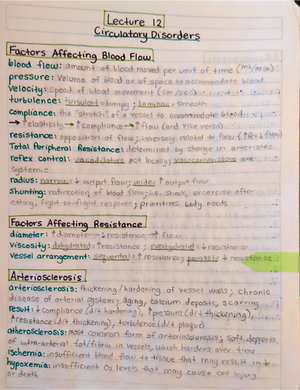 Lecture 12
Circulatory Disorders
Factors Affecting Blood Flow
blood flow: amount of blood moved per unit of time (mL/min)
pressure: volume of blood or of space to accommodate blood
velocity: speed of blood movement (cm/sec)
turbulence: turbulent = bumpy; laminar = smooth
compliance: the "stretch" of a vessel to accommodate blood
→ ↑elasticity → ↑compliance → ↑flow (and vice versa)
resistance: opposition of flow; inversely related to flow (↑R = ↓flow)
Total Peripheral Resistance: determined by change in arterioles
reflex control: vasodilators act locally; vasoconstrictors are
systemic
radius: narrow = ↓ output flow; wider ↑ output flow
Shunting: redirection of blood flow; i.e. shock, exercise after
eating, fight-or-flight response; prioritizes body needs
Factors Affecting Resistance
diameter: ↑diameter = ↓resistance = ↑flow
Viscosity: dehydrated = ↑resistance; overhydrated = ↓resistance
Vessel arrangement: sequential = ↑resistance; parallel = ↓resistance
Arteriosclerosis
arteriosclerosis: thickening/hardening of vessel walls; chronic
disease of arterial system; aging, calcium deposits, scarring
result: ↓compliance (d/t hardening), ↑pressure (d/t thickening),
↑resistance (d/t thickening), turbulence (d/t plaque)
atherosclerosis: most common form of arteriosclerosis; soft deposits
of intra-arterial fat/fibrin in vessels, which hardens over time
ischemia: insufficient blood flow to tissue that may result in
hypoxemia: insufficient O₂ levels that may cause cell injury
or death